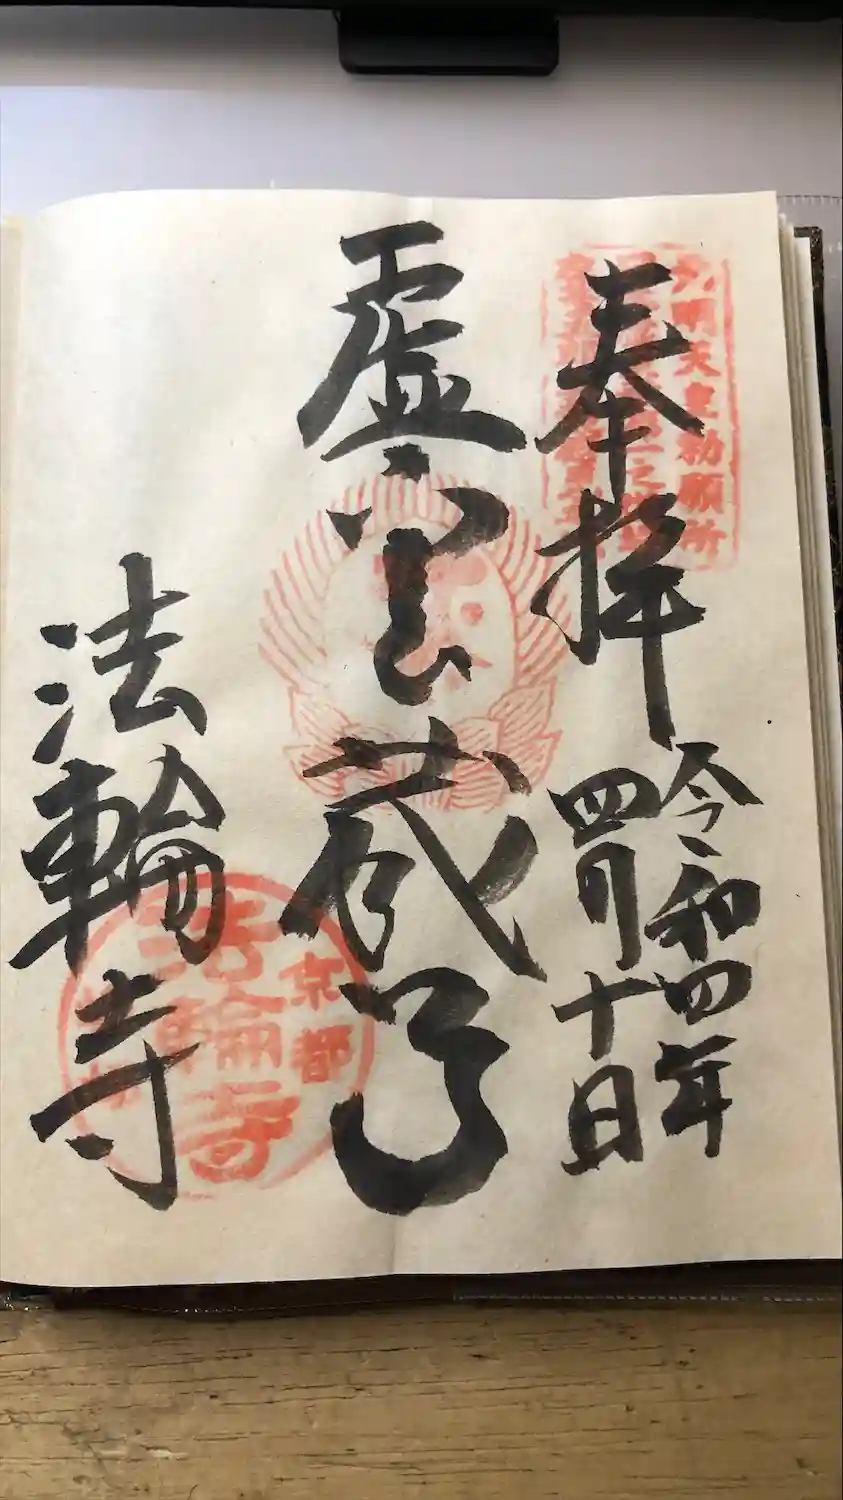 奉拝
令和四年
四月十日
虚空蔵尊
法輪寺
元明天皇勅願所
京都
法輪寺